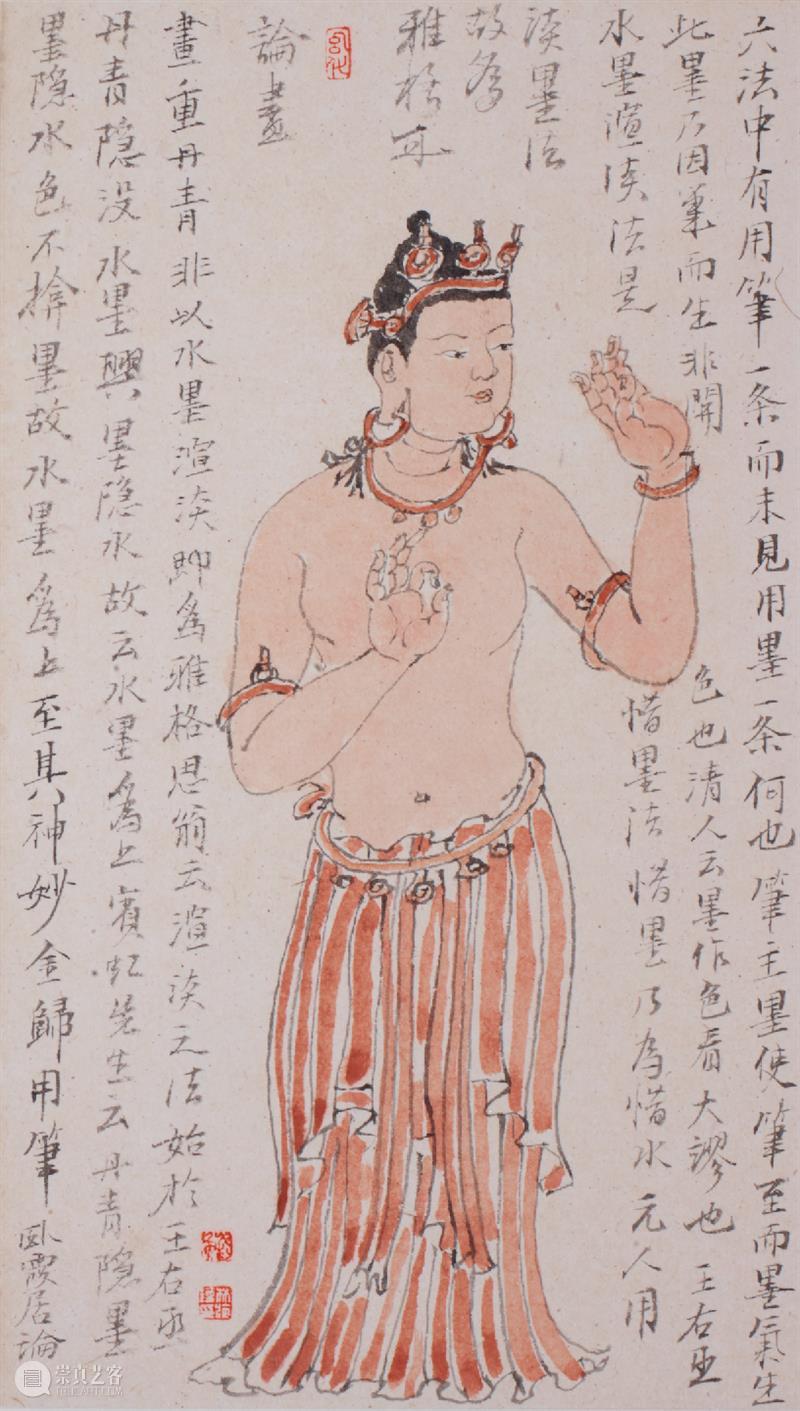 六法中有用筆一条而未見用墨一条何也筆主墨使筆至而墨氣生
此墨乃因筆而生非開色也清人云墨作色看大謬也王右丞
水墨渲淡法是惜墨法惜墨乃為惜水元人用
淡墨法
故為
雅格耳
論畫
畫重丹青非以水墨渲淡即為雅格思翁云渲淡之法始於王右丞
丹青隐没水墨興墨隐水故云水墨為上賓虹先生云丹青隐墨
墨隐水色不揜墨故水墨為上至其神妙全歸用筆 卧霞居論
崇真艺客